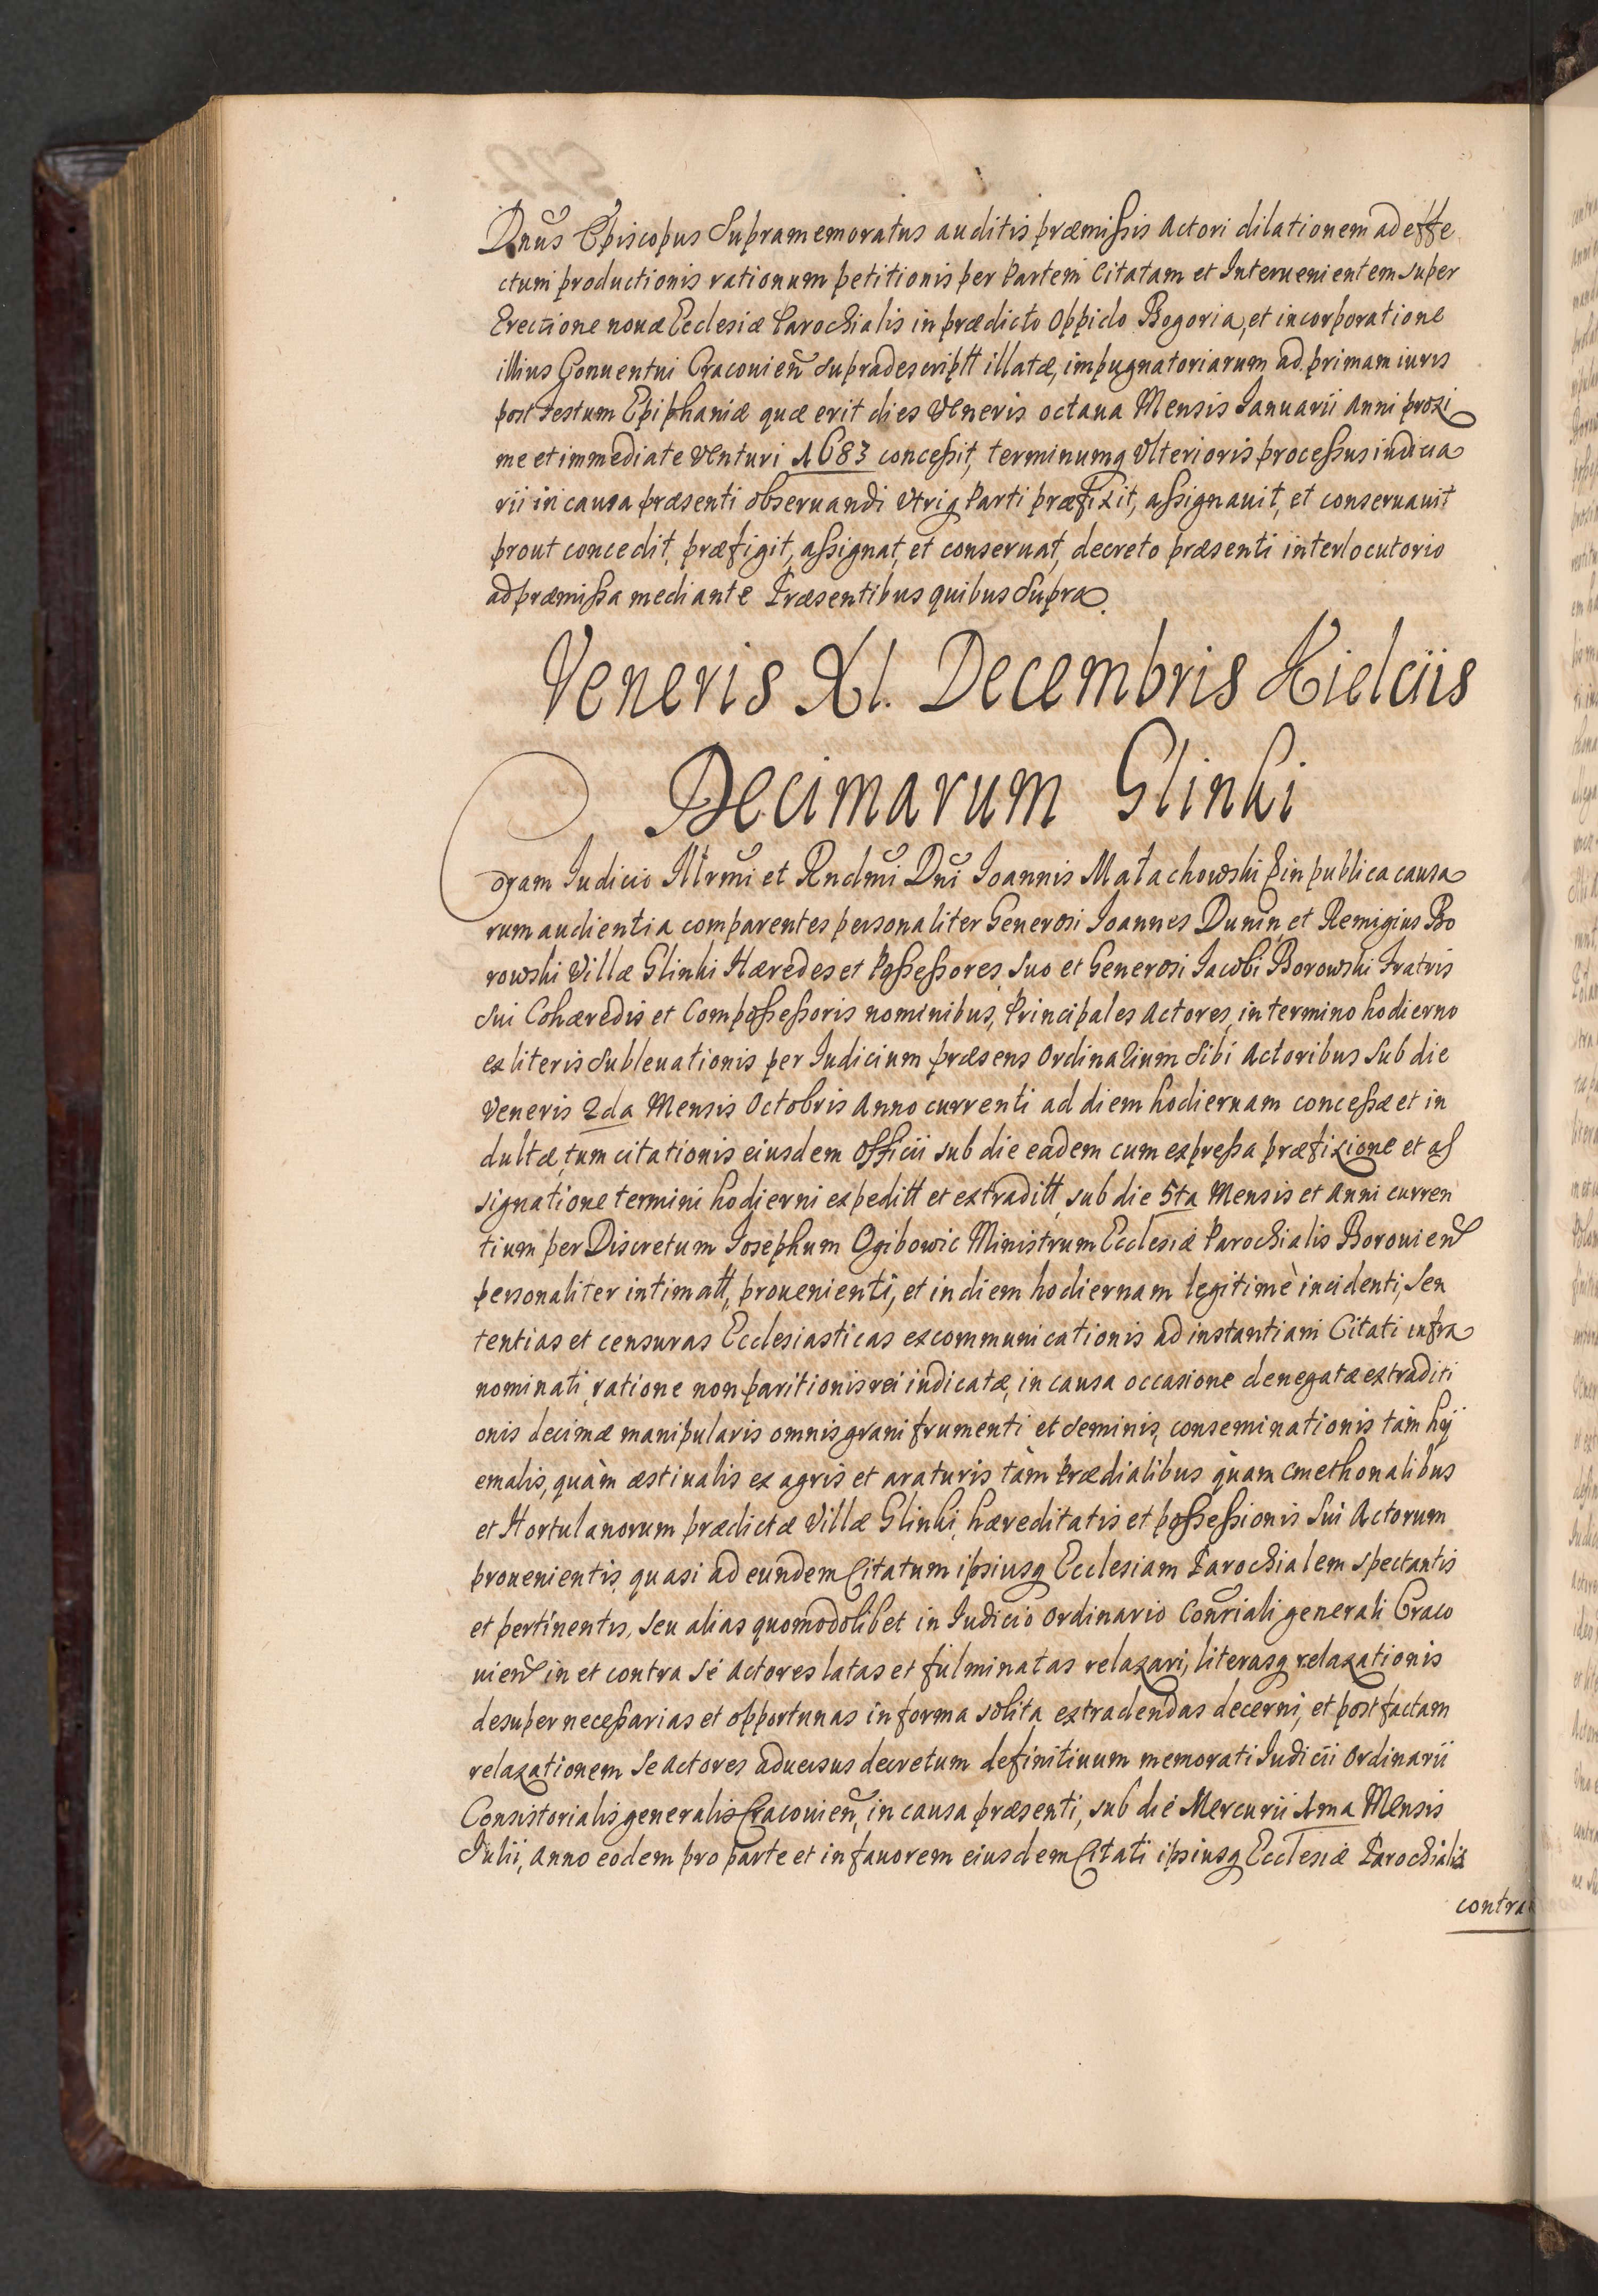 Dnus Episcopus Supramemoratus auditis præmissis Actori dilationem ad effe
ctum productionis rationum petitionis per Partem Citatam et Interuenientem super
Erectione nouæ Ecclesiæ Parochialis in prædicto Oppido Bogoria, et incorporatione
illius Conuentui Cracouien supradescriptt illatæ, impugnatoriarum ad primam iuris
post Festum Epiphaniæ quæ erit dies Veneris octaua Mensis Ianuarii Anni proxi
me et immediate Venturi 1683 concessit, terminumq Vlterioris processus iudicia
rii in causa præsenti obseruandi Vtriq Parti præfixit, assignauit, et conseruauit
prout concedit, præfigit, assignat, et conseruat, decreto præsenti interlocutorio
ad præmissa mediante Præsentibus quibus Supra.
Veneris XI. Decembris Kielciis
Decimarum Glinki
Coram Iudicio Illrmi et Rndmi Dni Ioannis Małachowski E in publica causa
rum audientia comparentes personaliter Generosi Ioannes Dunin et Remigius Bo
rowski Villæ Glinki Hæredes et Possessores, suo et Generosi Iacobi Borowski Fratris
Sui Cohæredis et Compossessoris nominibus, Principales Actores, in termino hodierno
ex literis Subleuationis per Iudicium præsens Ordinarium Sibi Actoribus Sub die
Veneris 2da Mensis Octobris Anno currenti ad diem hodiernam concessæ et in
dultæ, tum citationis eiusdem Officii sub die eadem cum expressa præfixione et as
signatione termini hodierni expeditt et extraditt, sub die 5ta Mensis et Anni curren
tium per Discretum Iosephum Ogibowic Ministrum Ecclesiæ Parochialis Borouien
personaliter intimatt, prouenienti, et in diem hodiernam legitimè incidenti, Sen
tentias et censuras Ecclesiasticas excommunicationis ad instantiam Citati infra
nominati, ratione non paritionis rei iudicatæ, in causa occasione denegatæ extraditi
onis decimæ manipularis omnis grani frumenti et seminis, conseminationis tàm hij
emalis, quàm æstiualis ex agris et araturis tàm Prædialibus quàm Cmethonalibus
et Hortulanorum prædictæ Villæ Glinki, hæreditatis et possessionis Sui Actorum
prouenientis, quasi ad eundem Citatum ipsiusq Ecclesiam Parochialem spectantis
et pertinentis, seu alias quomodolibet in Iudicio OrdinarioConsriali generali Craco
uien in et contra Se Actores latas et fulminatas relaxari, literasq relaxationis
desuper necessarias et opportunas in forma solita extradendas decerni, et post factam
relaxationem Se Actores aduersus decretum definitiuum memorati Iudicii Ordinarii
Consistorialis generalis Cracouien, in causa præsenti, sub die Mercurii 1ma Mensis
Iulii, Anno eodem pro parte et in fauorem eiusdem Citati ipsiusq Ecclesiæ Parochialis
contra